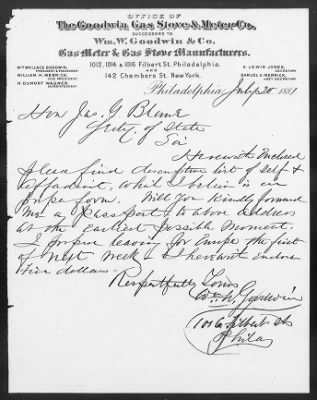 OFFICE OF
The Goodwin Gas Stove & Meter Co.
SUCCESSORS TO
Wm. W. Goodwin & Co.
Gas Meter & Gas Stove Manufacturers.
1012, 1014 & 1016 Filbert St. Philadelphia.
AND
142 Chambers St. New York.
Wm Wallace Goodwin,
PRESIDENT & TREASURER
William H. Merrick,
VICE PRESIDENT
H. Dumont Wagner,
SUPERINTENDENT
S. Lewis Jones,
SECRETARY
Samuel V. Merrick,
Philadelphia, July 20 1881
Hon Jas. G. Blaine
Secty. of State
Sir
Herewith Enclosed
please find description list of Self &
affidavit, which I believe is in
proper form. Will you kindly forward
me a Passport to above address
at the earliest possible moment.
I propose leaving for Europe the first
of next week & I herewith Enclose
Five dollars.
Respectfully Yours
Wm W. Goodwin
1016 Filbert St
Phila